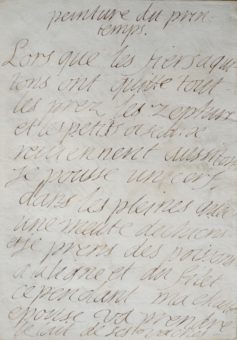 peinture du prin
temps.
Lors que les fiers aqui
lons ont quité tout
les prez les zephirs
et les petits oiseaux
reviennent aussitôt
Je pousse un cerf
dans les pleines qu'a
une meute
et je prens des poisons
a la ligne et au filet
cependant ma chaste
epouse va prendre
le lait de